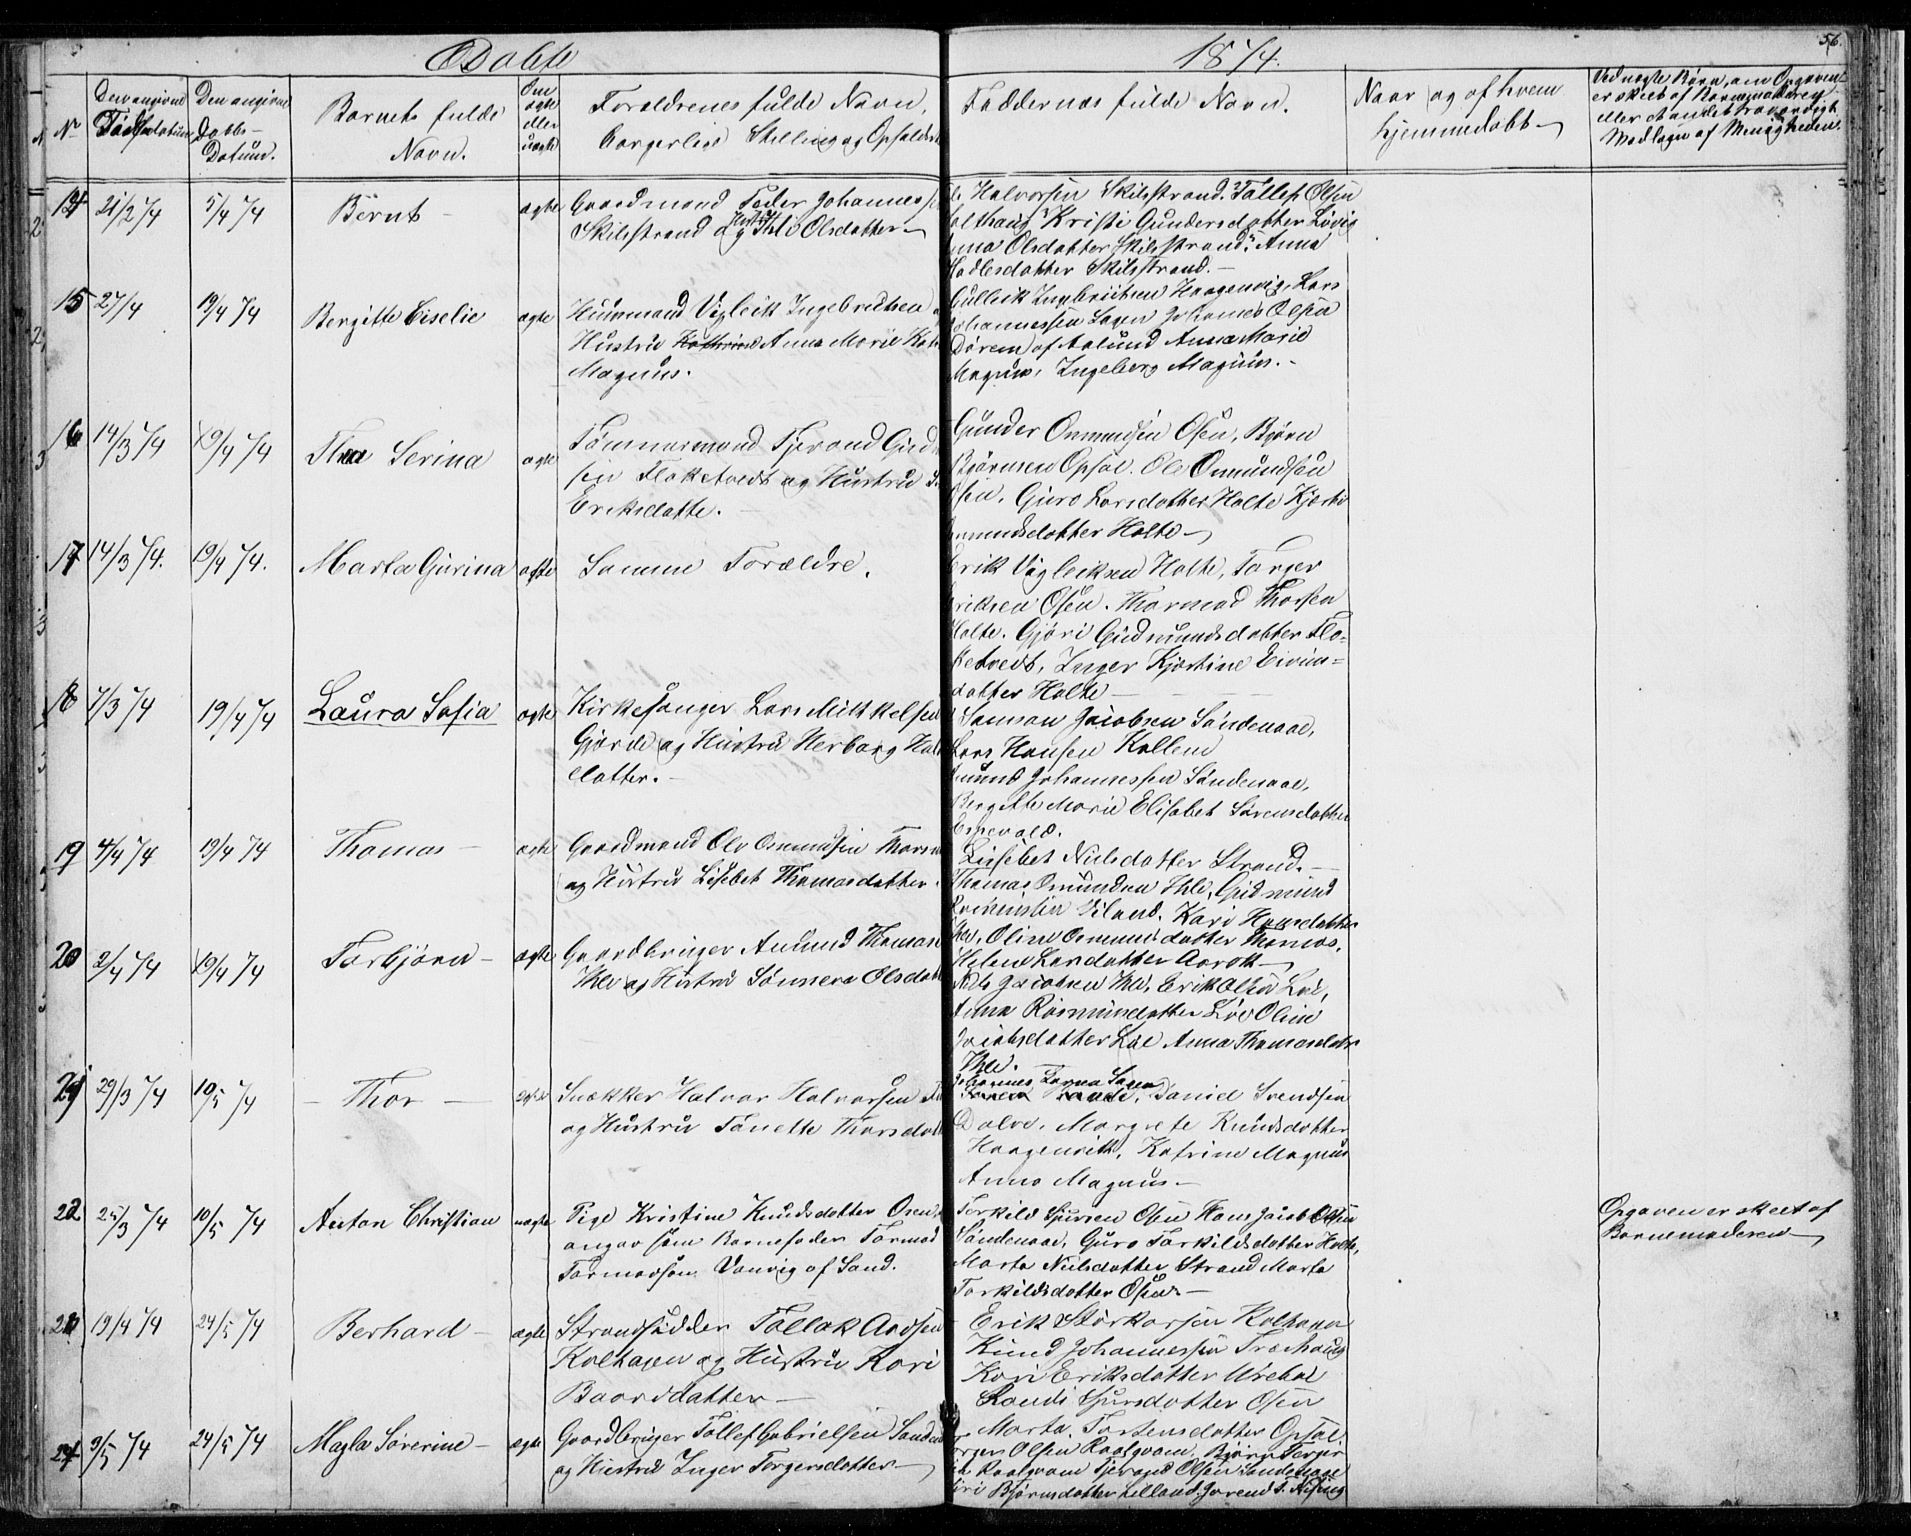 Døbte
1874.
56.
No
Den angivne Fødselsdatum
Den angivne Daabs-Datum.
Barnets fulde Navn.
Om ægte eller uægte
Forældrenes fulde Navn, borgerlige Stilling og Opholdsst
Faddernes fulde Navn.
Naar og af hvem hjemmedøbt
Ved uægte Børn, om Opgaven er skeet af Barnemoderen eller et andet troværdigt Medlem af Menigheden.
14 21/2 74 5/4 74 Bernt ægte
Gaardmand Peder Johannes
Skilsstrand og Hustru Ihle Olsdatter
Halvorsen Skilsstrand. Tollef Olsen
Kristi Gundersdatter Løvig
Olsdatter Skilsstrand. Anna
Skilsstrand.
15 27/4 19/4 74 Bergitte Ciselie ægte
Huusmand Vigleik Ingebretsen
Hustru Kathrine Anna Marie
Magnus.
Gullik Ingebritsen Haagenvig, Lars
Johannessen Sagen Johannes Olsen
af Aalund Anna Marie
Magnus, Ingeborg Magnus.
16 14/3 74 19/4 74 Thea Serina ægte
Tømmermand Tjerand Gud
sen Floketvedt og Hustru
Eriksdatte.
Gunder Onmundsen Osen, Bjørn
Bjørnsen Opsal. Ole Onmundsen
Osen. Guro Larsdatter Holte Kjersti
Holte
17 14/3 74. 19/4 74. Marta Gurina ægte
Samme Forældre.
Erik Vigleiksen Holte, Torger
Eriksen Osen. Thormod Thorsen
Holte. Gjøri Gudmundsdatter Flo-
ketvedt, Inger Kjerstine Eivin-
datter Holte
18 7/3 74 19/4 74 Laura Sofia ægte
Kirkesanger Lars Mikkelsen
Gjørde og Hustru Herborg
datter.
Samson Jacobsen Søndenaae,
Lars Hansen Kollem
Johannessen Søndenaae,
Bergitte Marie Elisabet Sørensdatter
19 4/4 74 19/4 74 Thomas ægte
Gaardmand Ole Osmundsen
og Hustru Lisebet Thomasdatter.
Lisebet Nilsdatter Strand.
Thomas Osmundsen Ihle, Gudmund
Viland. Kari Hansdatter
Ihle, Oline Osmundsdatter
Helene Larsdatter
20 2/4 74 19/4 74 Torbjørn ægte
Gaardbruger Amund Thomas
Ihle og Hustru Olsdatt
Nils Jacobsen Ihle, Erik Olsen Løe,
Anna Rasmundatter Løe Oline
Jacobsdatter Løe Anna Thomasdatr
Ihle.
21 29/3 74 10/5 74 Thor ægte
Snækker Halvor Halvorsen
og Hustru Tonette Thorsdat
Johannes Sagen
Daniel Svendsen
Dalve. Margrete Knudsdatter
Haagenvik, Katrine Magnus
Anna Magnus
22 25/3 74 10/5 74 Anton Christian uægte
Pige Kristine Knudsdatter Osen,
angav som Barnefader Tormod
Tormodsen Vanvig af Sand.
Torkild Sjursen Osen Hans Jacob Olsen
Søndenaae. Guro Torkildsdatter Holte,
Marta Nilsdatter Strand Marta
Torkildsdatter Osen
Opgaven er skeet af
Barnemoderen
19/4 74 24/5 74 Berhard ægte
Strandsidder Tollak Aadsen
Kolhagen og Hustru Kari
Baardsdatter
Erik Storkarsen Kolhagen
Knud Johannessen Træhaug
Kari Eriksdatter
Randi Sjursdatter Osen
Marta Torstensdatter Opsal
24 3/5 74 24/5 74 Magla Sørerine ægte
Gaardbruger Tollef Gabrielsen
og Hustru Inger Torgersdatter
Olsen Raalgvam, Bjørn
Raalgvam Tjerand Olsen Søndenaae
Bjørnsdatter Lilland,